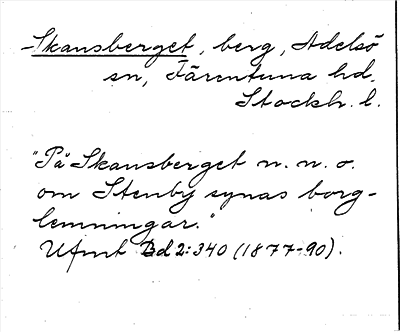 -Skansberget, berg, Adelsö
sn, Färentuna hd.
Stockh. l.
"På Skansberget n. n. o.
om Stenby synas borg-
lemningar."
Ufmt Bd 2:340 (1877-90).